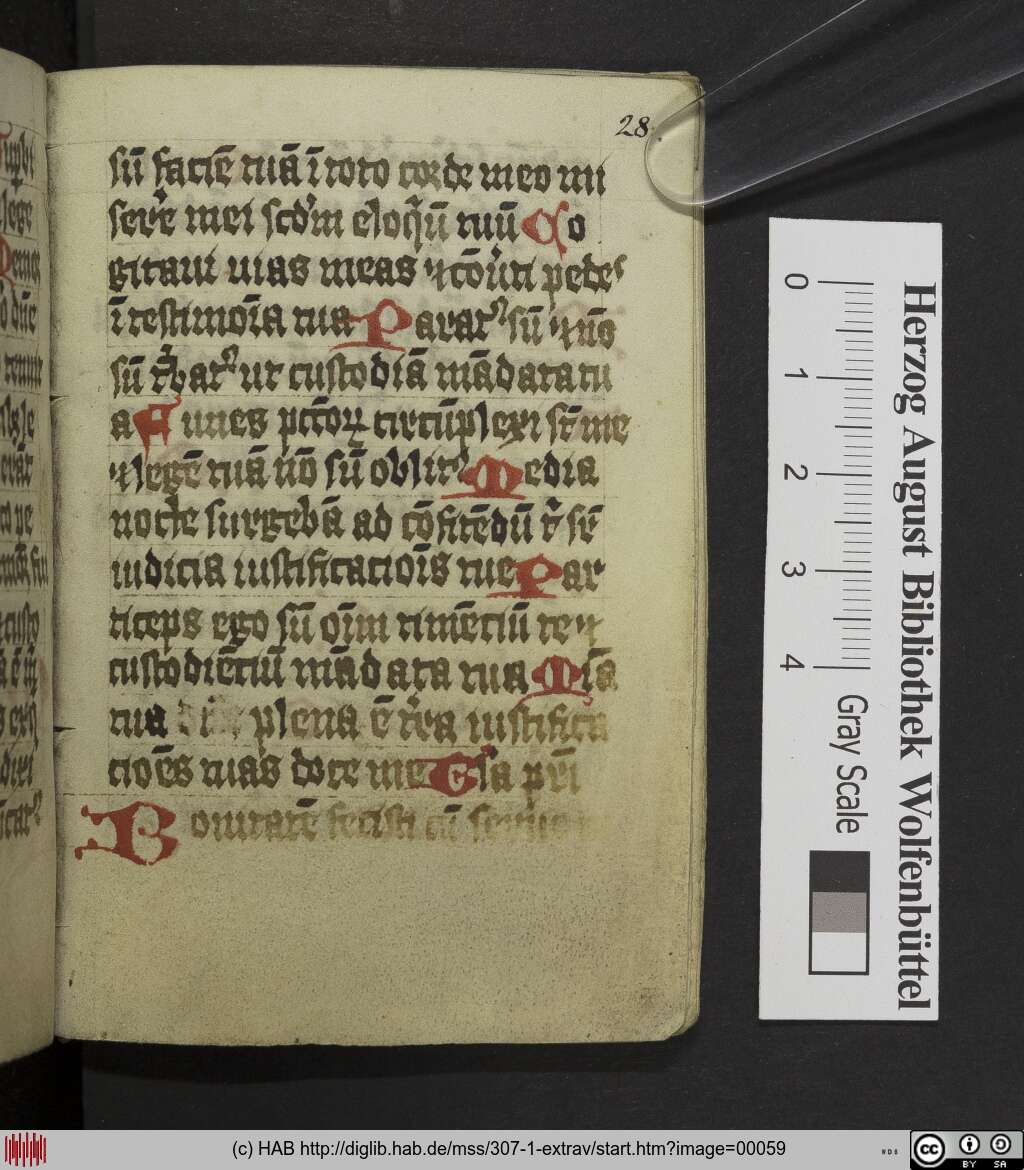 28
sū faciē tuā ī toto corde meo mi
serˀe mei scdm̄ eloqͥū tuū Co
gitaui uias meas ⁊ cōuˀti pedes
ī testimoīa tua Paratꝰ sū ⁊ nō
sū tˀbatꝰ ut custodiā mādata tu
a Funes pctōꝝ circūplexi st̄ me
⁊ legē tuā nō sū oblitꝰ Media
nocte surgebā ad cōfitēdū tˀ sr̄
iudicia iustificacioīs tue Par
ticeps ego sū oīm timēciū te ⁊
custodiēciū mādata tua Mīa
tua plena ē trˀa iustifica
cioēs tuas doce me Gl̓a pr̄i
Bonitatē fecisti cū seruo
Herzog August Bibliothek Wolfenbüttel
0 1 2 3 4 Gray Scale
(c) HAB http://diglib.hab.de/mss/307-1-extrav/start.htm?image=00059
cc BY SA